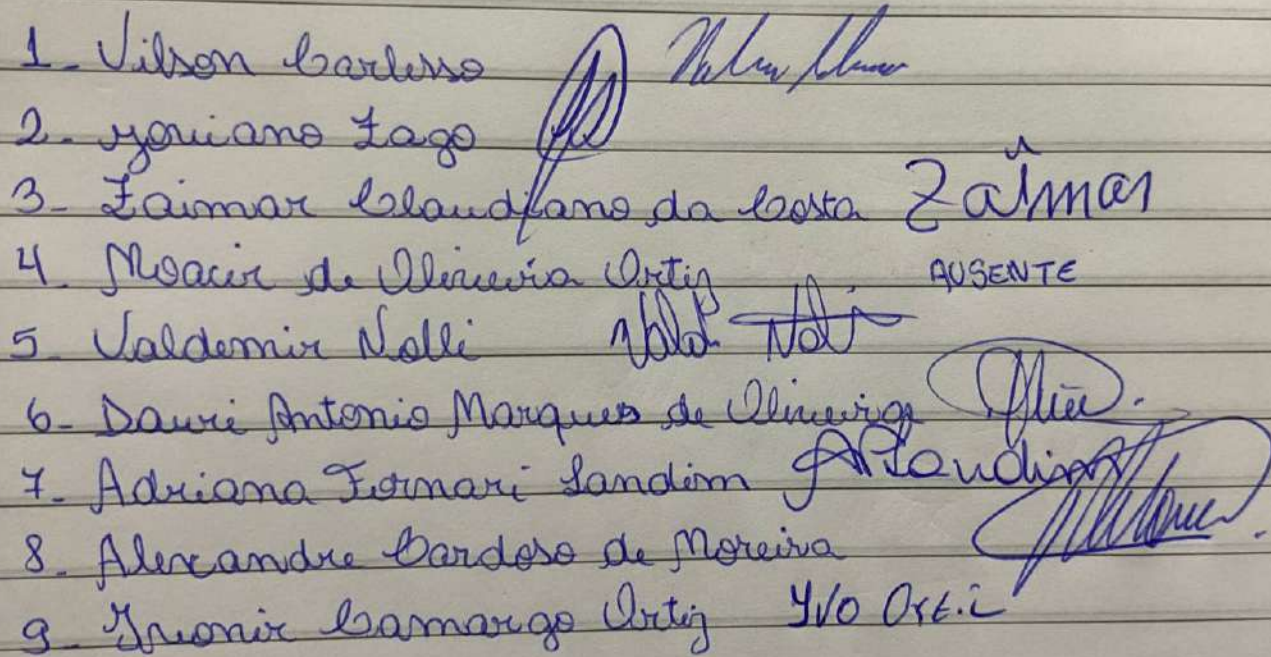 1- Vilson Carlesso
2- Joviano Zago
3- Zaimar Claudiano da Costa Zaimar
4 Moacir de Oliveira Ortiz AUSENTE
5- Valdemir Nolli
6- Dauri Antonio Marques de Oliveira
7- Adriana Fornari Landim
8- Alexandre Cardoso de Moreira
9- Ivonir Camargo Ortiz Yvo Orti